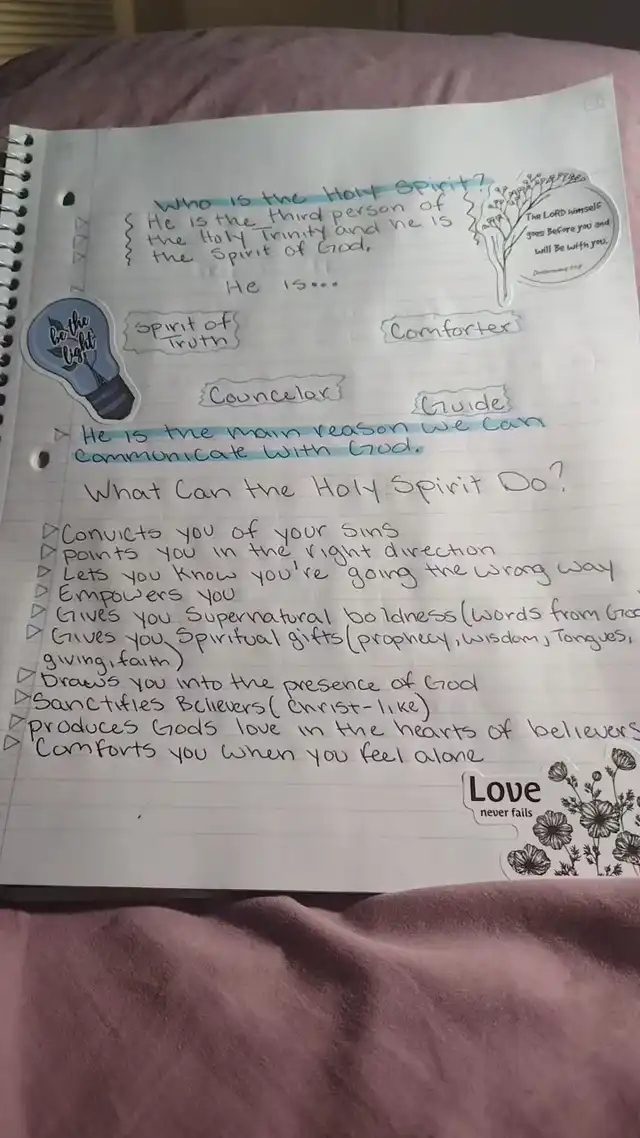 Who is the Holy Spirit?
He is the third person of
the Holy Trinity and he is
the Spirit of God.
The LORD Himself
goes Before you and
will Be with you.
He is...
be the
light
Spirit of
Truth
Comforter
Councelor
Guide
He is the main reason we can
communicate with God.
What Can the Holy Spirit Do?
Convicts you of your sins
points you in the right direction
Lets you know you're going the wrong way
Empowers you
Gives you Supernatural boldness (words from Go
Gives you Spiritual gifts (prophecy, wisdom, Tongues,
giving, faith)
Draws you into the presence of God
Sanctifies Believers (Christ-like)
produces Gods love in the hearts of believers
Comforts you when you feel alone
Love
never fails